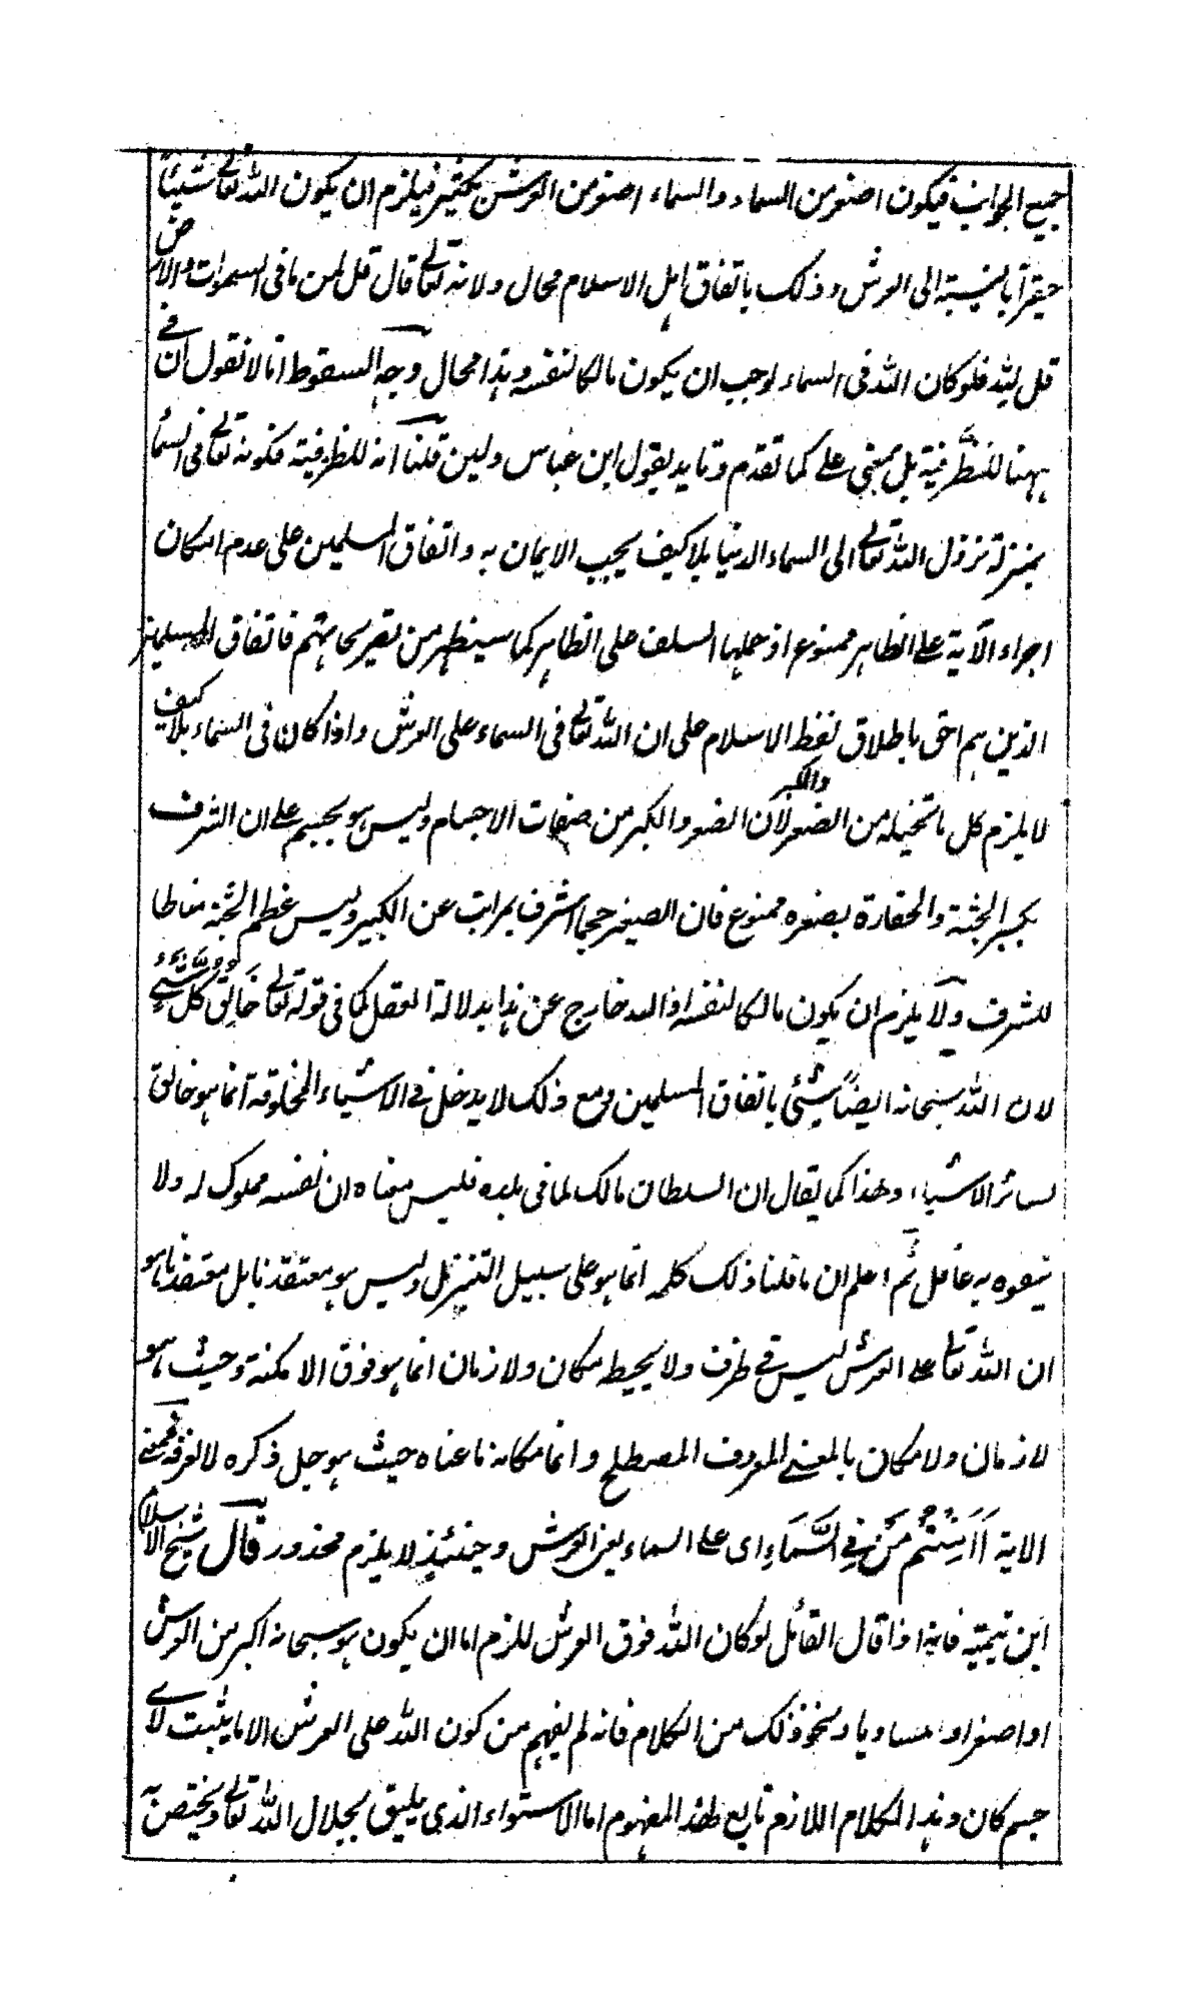 جميع الجوانب فيكون اصغر من السماء والسماء اصغر من العرش بكثير فيلزم ان يكون الله تعالى شيئاً
حقيراً بالنسبة الى العرش وذلك باتفاق اهل الاسلام محال ولانه تعالى قال قل لمن ما فى السموات والارض
قل لله فلو كان الله فى السماء لوجب ان يكون مالكا لنفسه وهذا محال وجه السقوط انا لا نقول ان فى
ههنا للظرفية بل بمعنى على كما تقدم وتايد بقول ابن عباس ولين قلنا انه للظرفية فكونه تعالى فى السماء
بمنزلة نزول الله تعالى الى السماء الدنيا بلا كيف يجب الايمان به واتفاق المسلمين على عدم امكان
اجراء الآية على الظاهر ممنوع اذ حملها السلف على الظاهر كما سيظهر من تصريحاتهم فاتفاق المسلمين
الذين هم احق باطلاق لفظ الاسلام على ان الله تعالى فى السماء على العرش واذا كان فى السماء بلا كيف
لا يلزم كل ما تخيله من الصغر والكبر لان الصغر والكبر من صفات الاجسام وليس هو بجسم على ان الشرف
بكبر الجثة والحقارة بصغره ممنوع فان الصغير حجما اشرف بمراتب عن الكبير وليس عظم الجثة مناطا
للشرف ولا يلزم ان يكون مالكا لنفسه اذ الله خارج عن هذا بدلالة العقل كما فى قوله تعالى خَالِقُ كُلِّ شَيْءٍ
لان الله سبحانه ايضاً شيئى باتفاق المسلمين ومع ذلك لا يدخل فى الاشياء المخلوقة انما هو خالق
لسائر الاشياء وهذا كما يقال ان السلطان مالك لما فى بلده فليس معناه ان نفسه مملوك له ولا
يتفوه به عاقل ثم اعلم ان ما قلنا ذلك كله انما هو على سبيل التنزيل وليس هو معتقدنا بل معتقدنا هو
ان الله تعالى على العرش ليس فى طرف ولا يحيطه مكان ولا زمان انما هو فوق الامكنة وحيث هو
لا زمان ولا مكان بالمعنى المعروف المصطلح وانما مكانه ما عناه حيث هو جل ذكره لا نعرفه فمعنى
الاية أَأَمِنْتُم مَّن فِي السَّمَاءِ اى على السماء يعنى العرش وحينئذ لا يلزم محذور قال شيخ الاسلام
ابن تيمية فانه اذا قال القائل لو كان الله فوق العرش للزم اما ان يكون هو سبحانه اكبر من العرش
او اصغر او مساويا ونحو ذلك من الكلام فانه لم يفهم من كون الله على العرش الا ما يثبت لاى
جسم كان وهذا الكلام اللازم تابع لهذا المفهوم اما الاستواء الذى يليق بجلال الله تعالى ويختص به